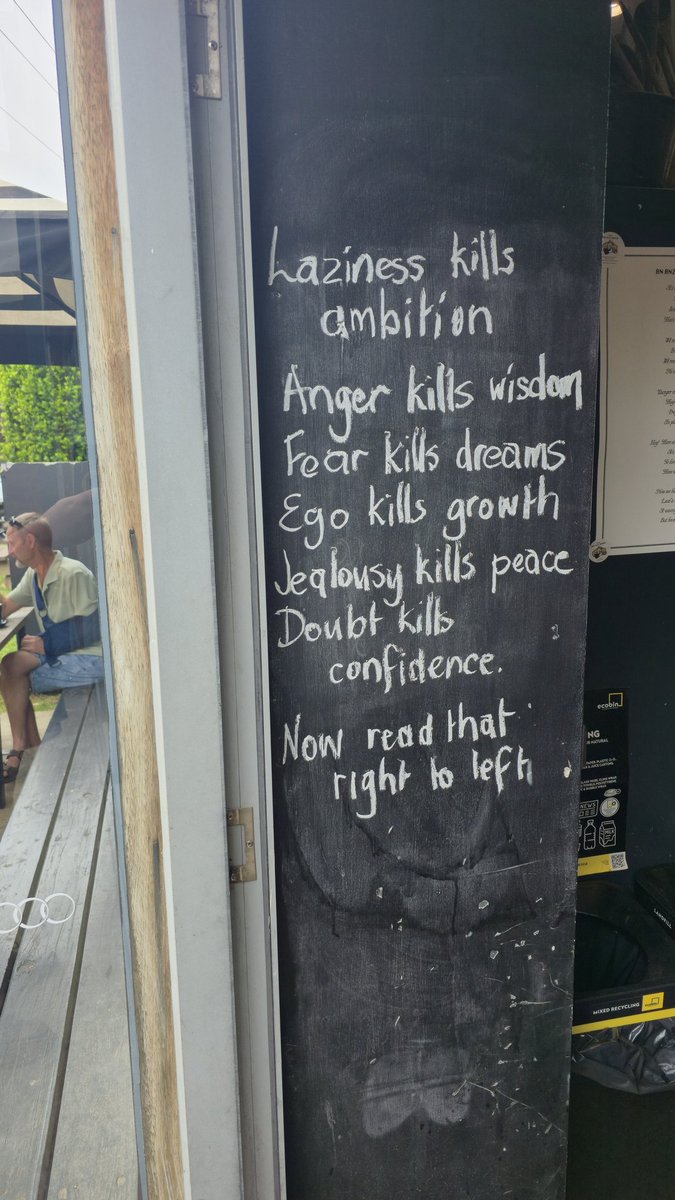 Laziness kills
ambition
Anger kills wisdom
Fear kills dreams
Ego kills growth
Jealousy kills peace
Doubt kills
confidence.
Now read that
right to left
ecobin
NEWS
LANDFILL
MIXED RECYCLING
ecobin